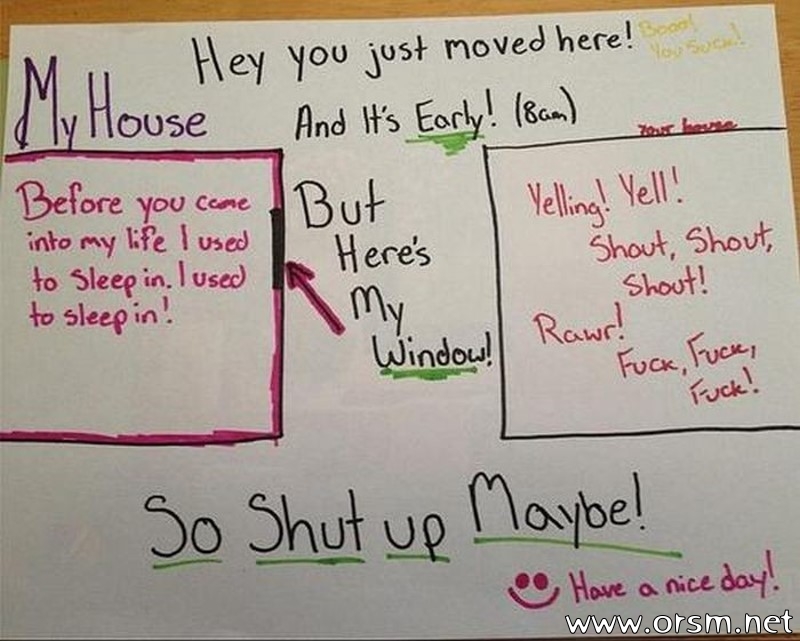 Hey you just moved here!
Booo!
You Suck!
My House
And It's Early! (8am)
Your house
Before you came
into my life I used
to sleep in. I used
to sleep in!
But
Here's
My
Window!
Yelling! Yell!
Shout, Shout,
Shout!
Rawr!
Fuck, Fuck,
Fuck!
So Shut up Maybe!
Have a nice day!
www.orsm.net